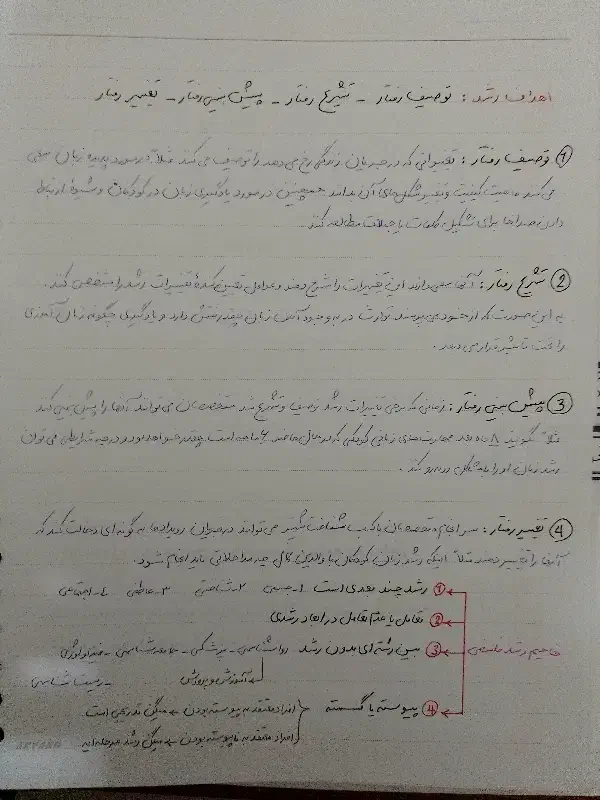 اهداف رشد : توصیف رفتار - تشریح رفتار - پیش بینی رفتار - تغییر رفتار
① توصیف رفتار : تغییراتی که در جریان زندگی رخ می دهد را توصیف می کند مثلاً در مورد پدیده زبان سعی
می کند ماهیت کیفیت و تغییر شکل های آن بدانند همچنین در مورد یادگیری زبان در کودکان و شیوهٔ ارتباط
دادن صداها برای تشکیل کلمات یا جملات مطالعه کند
② تشریح رفتار : آنها سعی دارند این تغییرات را شرح دهند و عوامل تعیین کنندهٔ تغییرات رشد را مشخص کند.
به این صورت که از خود می پرسند توارث در به وجود آمدن زبان چقدر نقش دارد و یادگیری چگونه زبان آموزی
را تحت تاثیر قرار می دهد.
③ پیش بینی رفتار : زمانی که برخی تغییرات رشد توصیف و تشریح شد متخصصان می توانند آنها را پیش بینی کند
مثلاً گویند ۸ ماه بعد مهارت های زبانی کودکی که در حال حاضر ۶ ماهه است چقدر خواهد بود و در چه شرایطی می توان
رشد زبان او را با مشکل روبه رو کند.
④ تغییر رفتار : سرانجام متخصصان با کسب شناخت بیشتر می توانند در جریان رویدادها به گونه ای دخالت کند که
آنها را تغییر دهند مثلاً اینکه رشد زبان کودکان با والدین لال چه مداخلاتی باید انجام شود.
① رشد چند بعدی است ۱- جسمی ۲- شناختی ۳- عاطفی ۴- اجتماعی
② تعامل یا عدم تعامل در ابعاد رشدی
مفاهیم رشد
③ بین رشته ای بودن رشد روانشناسی - پزشکی - جامعه شناسی - فیزیولوژی
آموزش و پرورش - زیست شناسی
④ پیوسته یا گسسته افراد معتقد به پیوسته بودن ← میگن تدریجی است
افراد معتقد به ناپیوسته بودن ← میگن رشد مرحله ایه